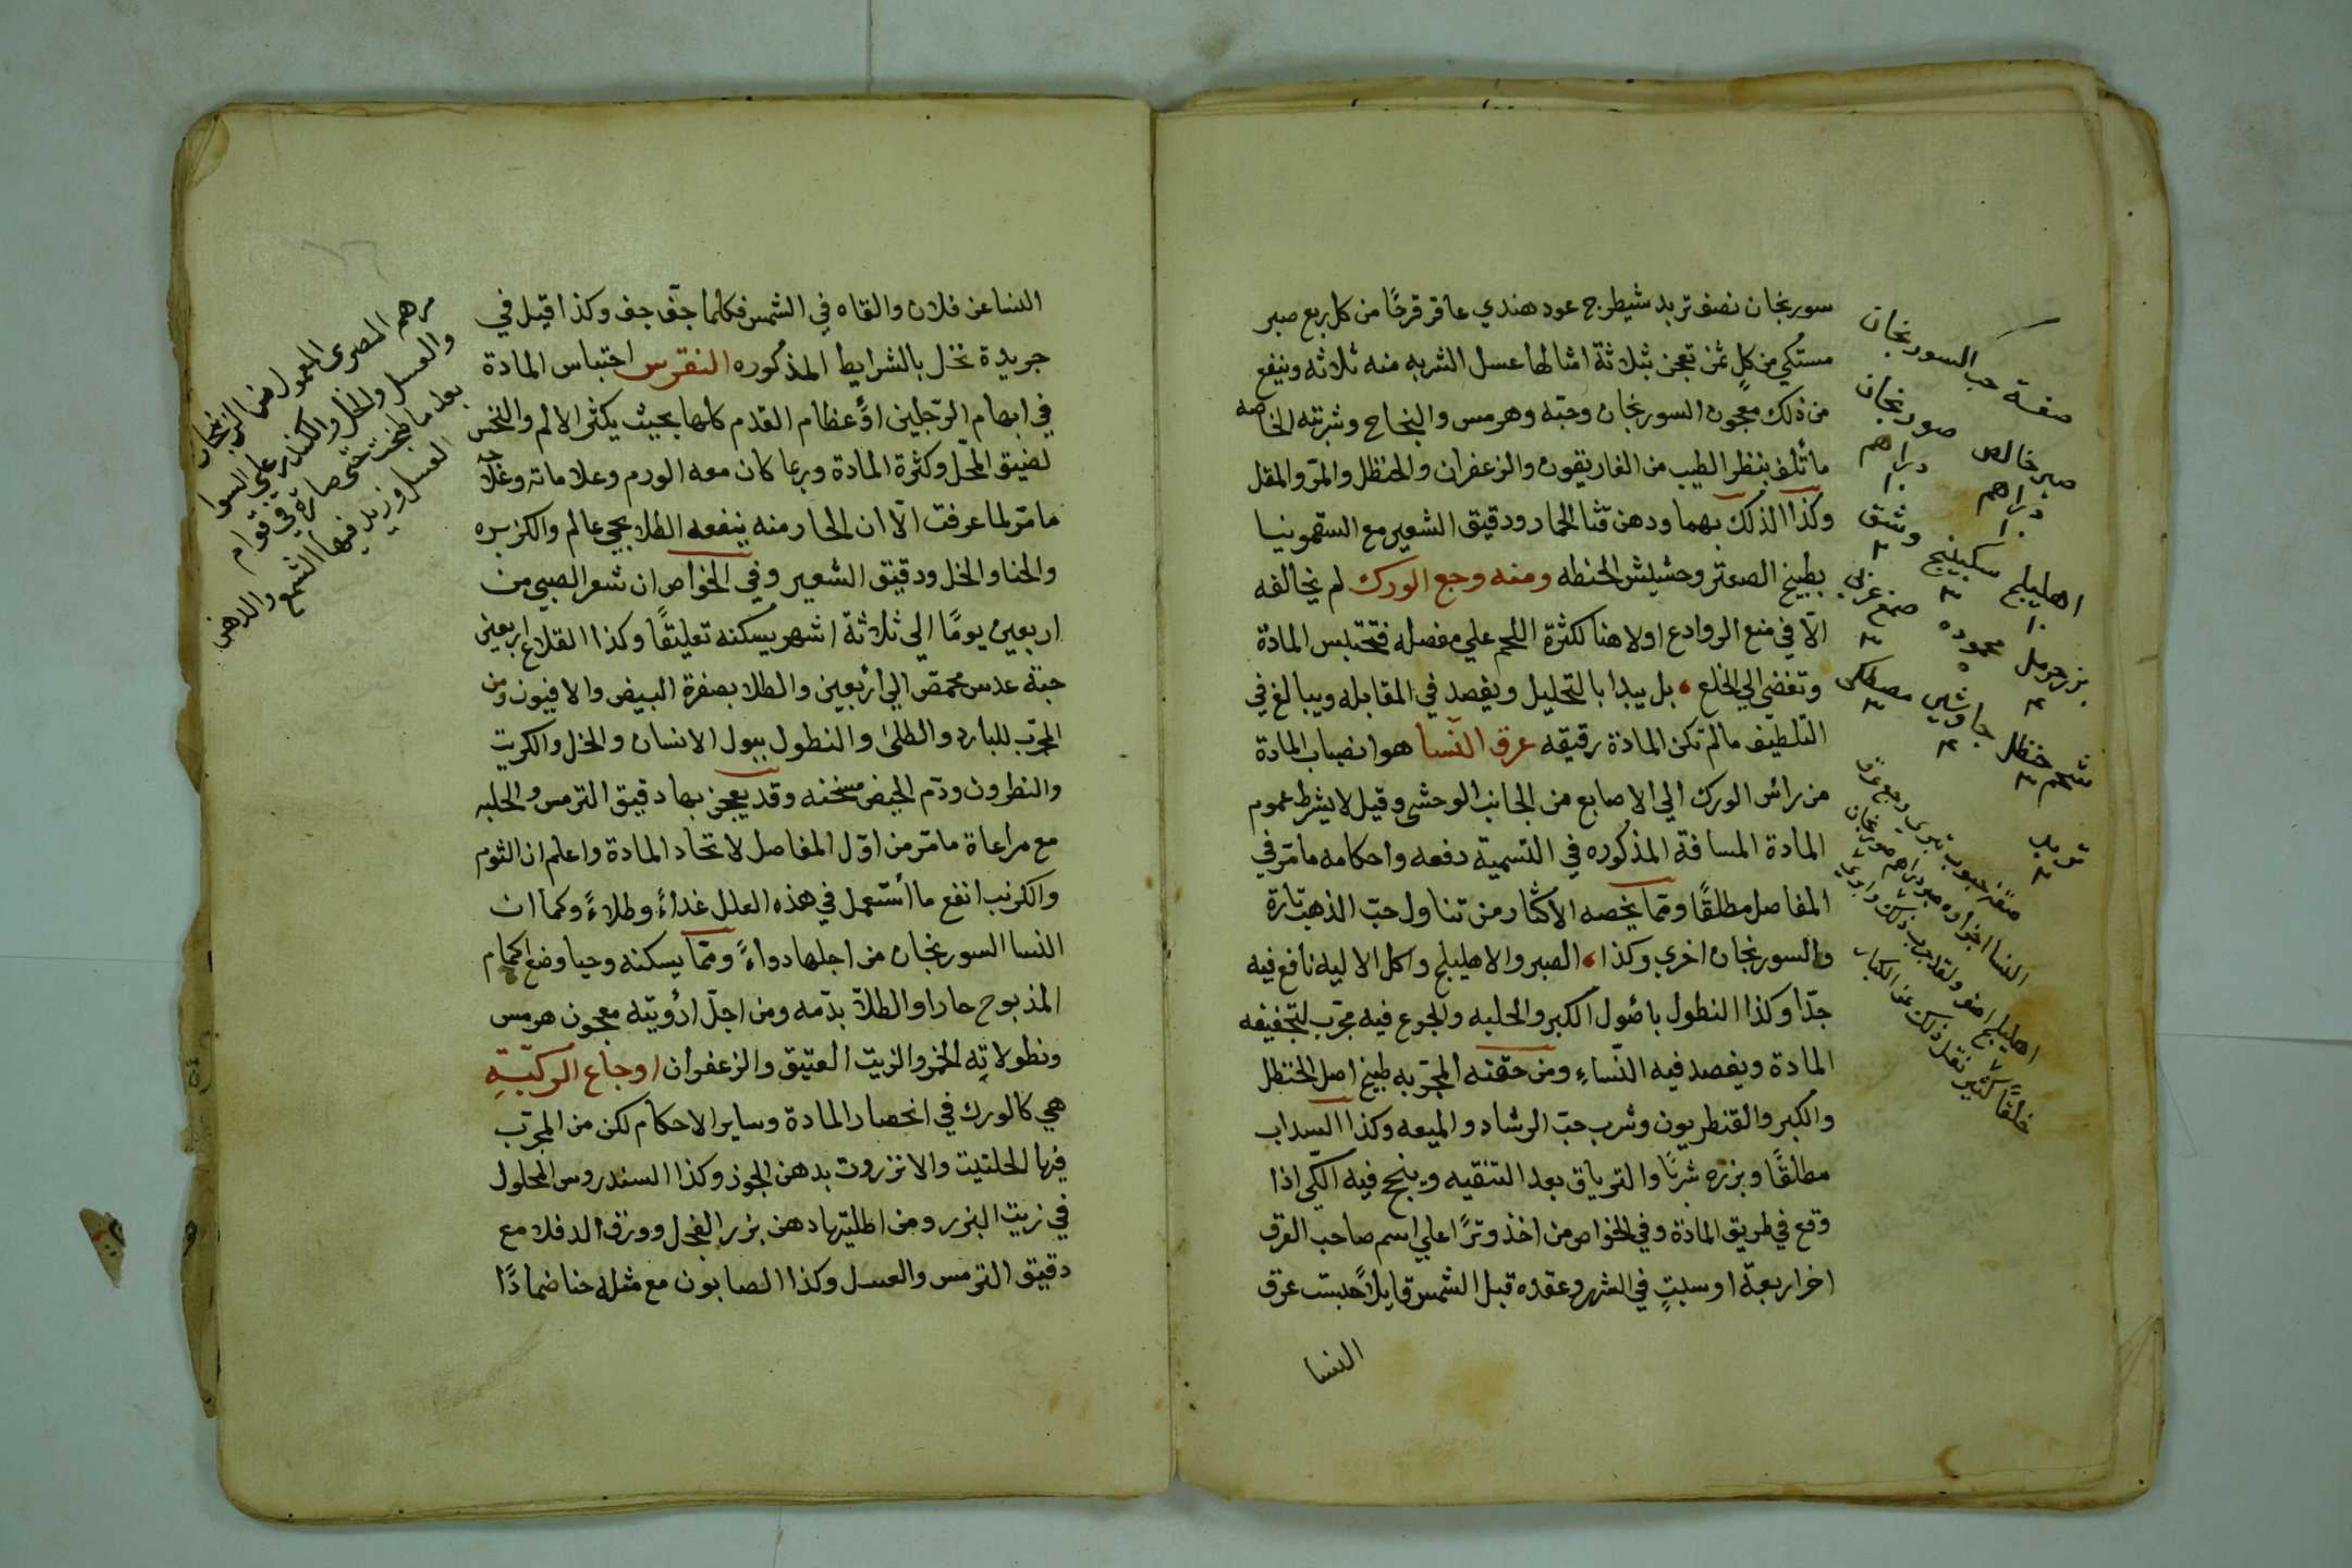 سورنجان نصف تربد شيطرج عود هندي عاقر قرحًا من كل ربع صبر
مستكي من كلٍ ثمن تعجن بثلاثة امثالها عسل الشربه منه ثلاثه وينفع
من ذلك معجون السورنجان وحبّه وهرمس والنجاح وشربته الخاصه
ما تألف بنظر الطيب من الغاريقون والزعفران والحنظل والمرّ والمقل
وكذا الدلك بهما ودهن قثا الحمار ودقيق الشعير مع السقمونيا
بطبيخ الصعتر وحشيش الحنطه ومنه وجع الورك لم يخالفه
الّا في منع الروادع اولا هنا لكثرة اللحم علي مفصله فتحتبس المادة
وتفضي الي الخلع بل يبدا بالتحليل ويفصد في المقابله ويبالغ في
التلطيف مالم تكن المادة رقيقه عرق النسا هو انصباب المادة
من رأس الورك الي الاصابع من الجانب الوحشي وقيل لا يشرط عموم
المادة المسافة المذكوره في التسمية دفعه واحكامه مامرّ في
المفاصل مطلقًا وممّا يخصه الأكثار من تناول حبّ الذهب تارة
والسورنجان اخري وكذا الصبر والاهليلج واكل الاليه نافع فيه
جدّا وكذا النطول باصول الكبر والحلبه والجوع فيه مجرّب لتجفيفه
المادة ويفصد فيه النّساءِ ومن حقنه المجرّبه طبيخ اصل الحنظل
والكبر والقنطريون وشرب حبّ الرشاد والميعه وكذا السداب
مطلقًا وبزره شربًا والترياق بعد التنقيه وينجح فيه الكّي اذا
وقع في طريق المادة وفي الخواص من اخذ وترًا علي اسم صاحب العرق
اخر اربعة او سبتٍ في الشهر وعقده قبل الشمس قايلاً حبست عرق
النسا
صفة حب السورنجان
صبر خالص صورنجان
دراهم دراهم
١٠ ١٠
اهليلج سكبينج وشق
١٠ ٣ ٣
بزر حرمل محموده صمغ عربي
٥ ٣
شحم حنظل جاوشير مصطكى
٣ ٣ ٣
تربد
٣
النسا عن فلان والقاه في الشمس فكلما جفّ جف وكذا قيل في
جريدة نخل بالشرايط المذكوره النقرس احتباس المادة
في ابهام الرّجلين اوّ عظام القدم كلها بحيث يكثر الالم والنخس
لضيق المحلّ وكثرة المادة وربما كان معه الورم وعلاماته وعلاجه
مامرّ لما عرفت الّا ان الحار منه ينفعه الطلا بحي عالم والكزبره
والحنا والخل ودقيق الشعير وفي الخواص ان شعر الصبي من
اربعين يومًا الي ثلاثة اشهر يسكنه تعليقًا وكذا القلاع اربعين
حبّة عدس محمصّ الي أربعين والطلا بصفرة البيض والافيون ومن
المجرّب للبارد والطلى والنطول ببول الانسان والخل والكريت
والنطرون ودّم الحيض مسخنه وقد يعجن بها دقيق الترمس والحلبه
مع مراعاة مامرّ من اوّل المفاصل لاتحاد المادة واعلم ان الثوم
والكرنب انفع ما أستعمل في هذه العلل غداءً وطلاءً وكما ان
النسا السورنجان من اجلها دواءً وممّا يسكنه وحيا وضع الحمام
المذبوح حارا والطلآ بدّمه ومن اجلّ ادويته معجون هرمس
ونطولاتِه الخمر والزيت العتيق والزعفران اوجاع الركبةِ
هي كالورك في انحصار المادة وساير الاحكام لكن من المجرّب
فيها الحلتيت والانزروت بدهن الجوز وكذا السندروس المحلول
في زيت البزر ومن اطليتها دهن بزر الفجل وورق الدفلا مع
دقيق الترمس والعسل وكذا الصابون مع مثله حنا ضمادًا
مرهم المصرى المعمول من الزنجان
والعسل والخل والكندر علي السوا
بعد ما طبخت حتى صارت في قوام
العسل وزيد فيها الشمع والدهن